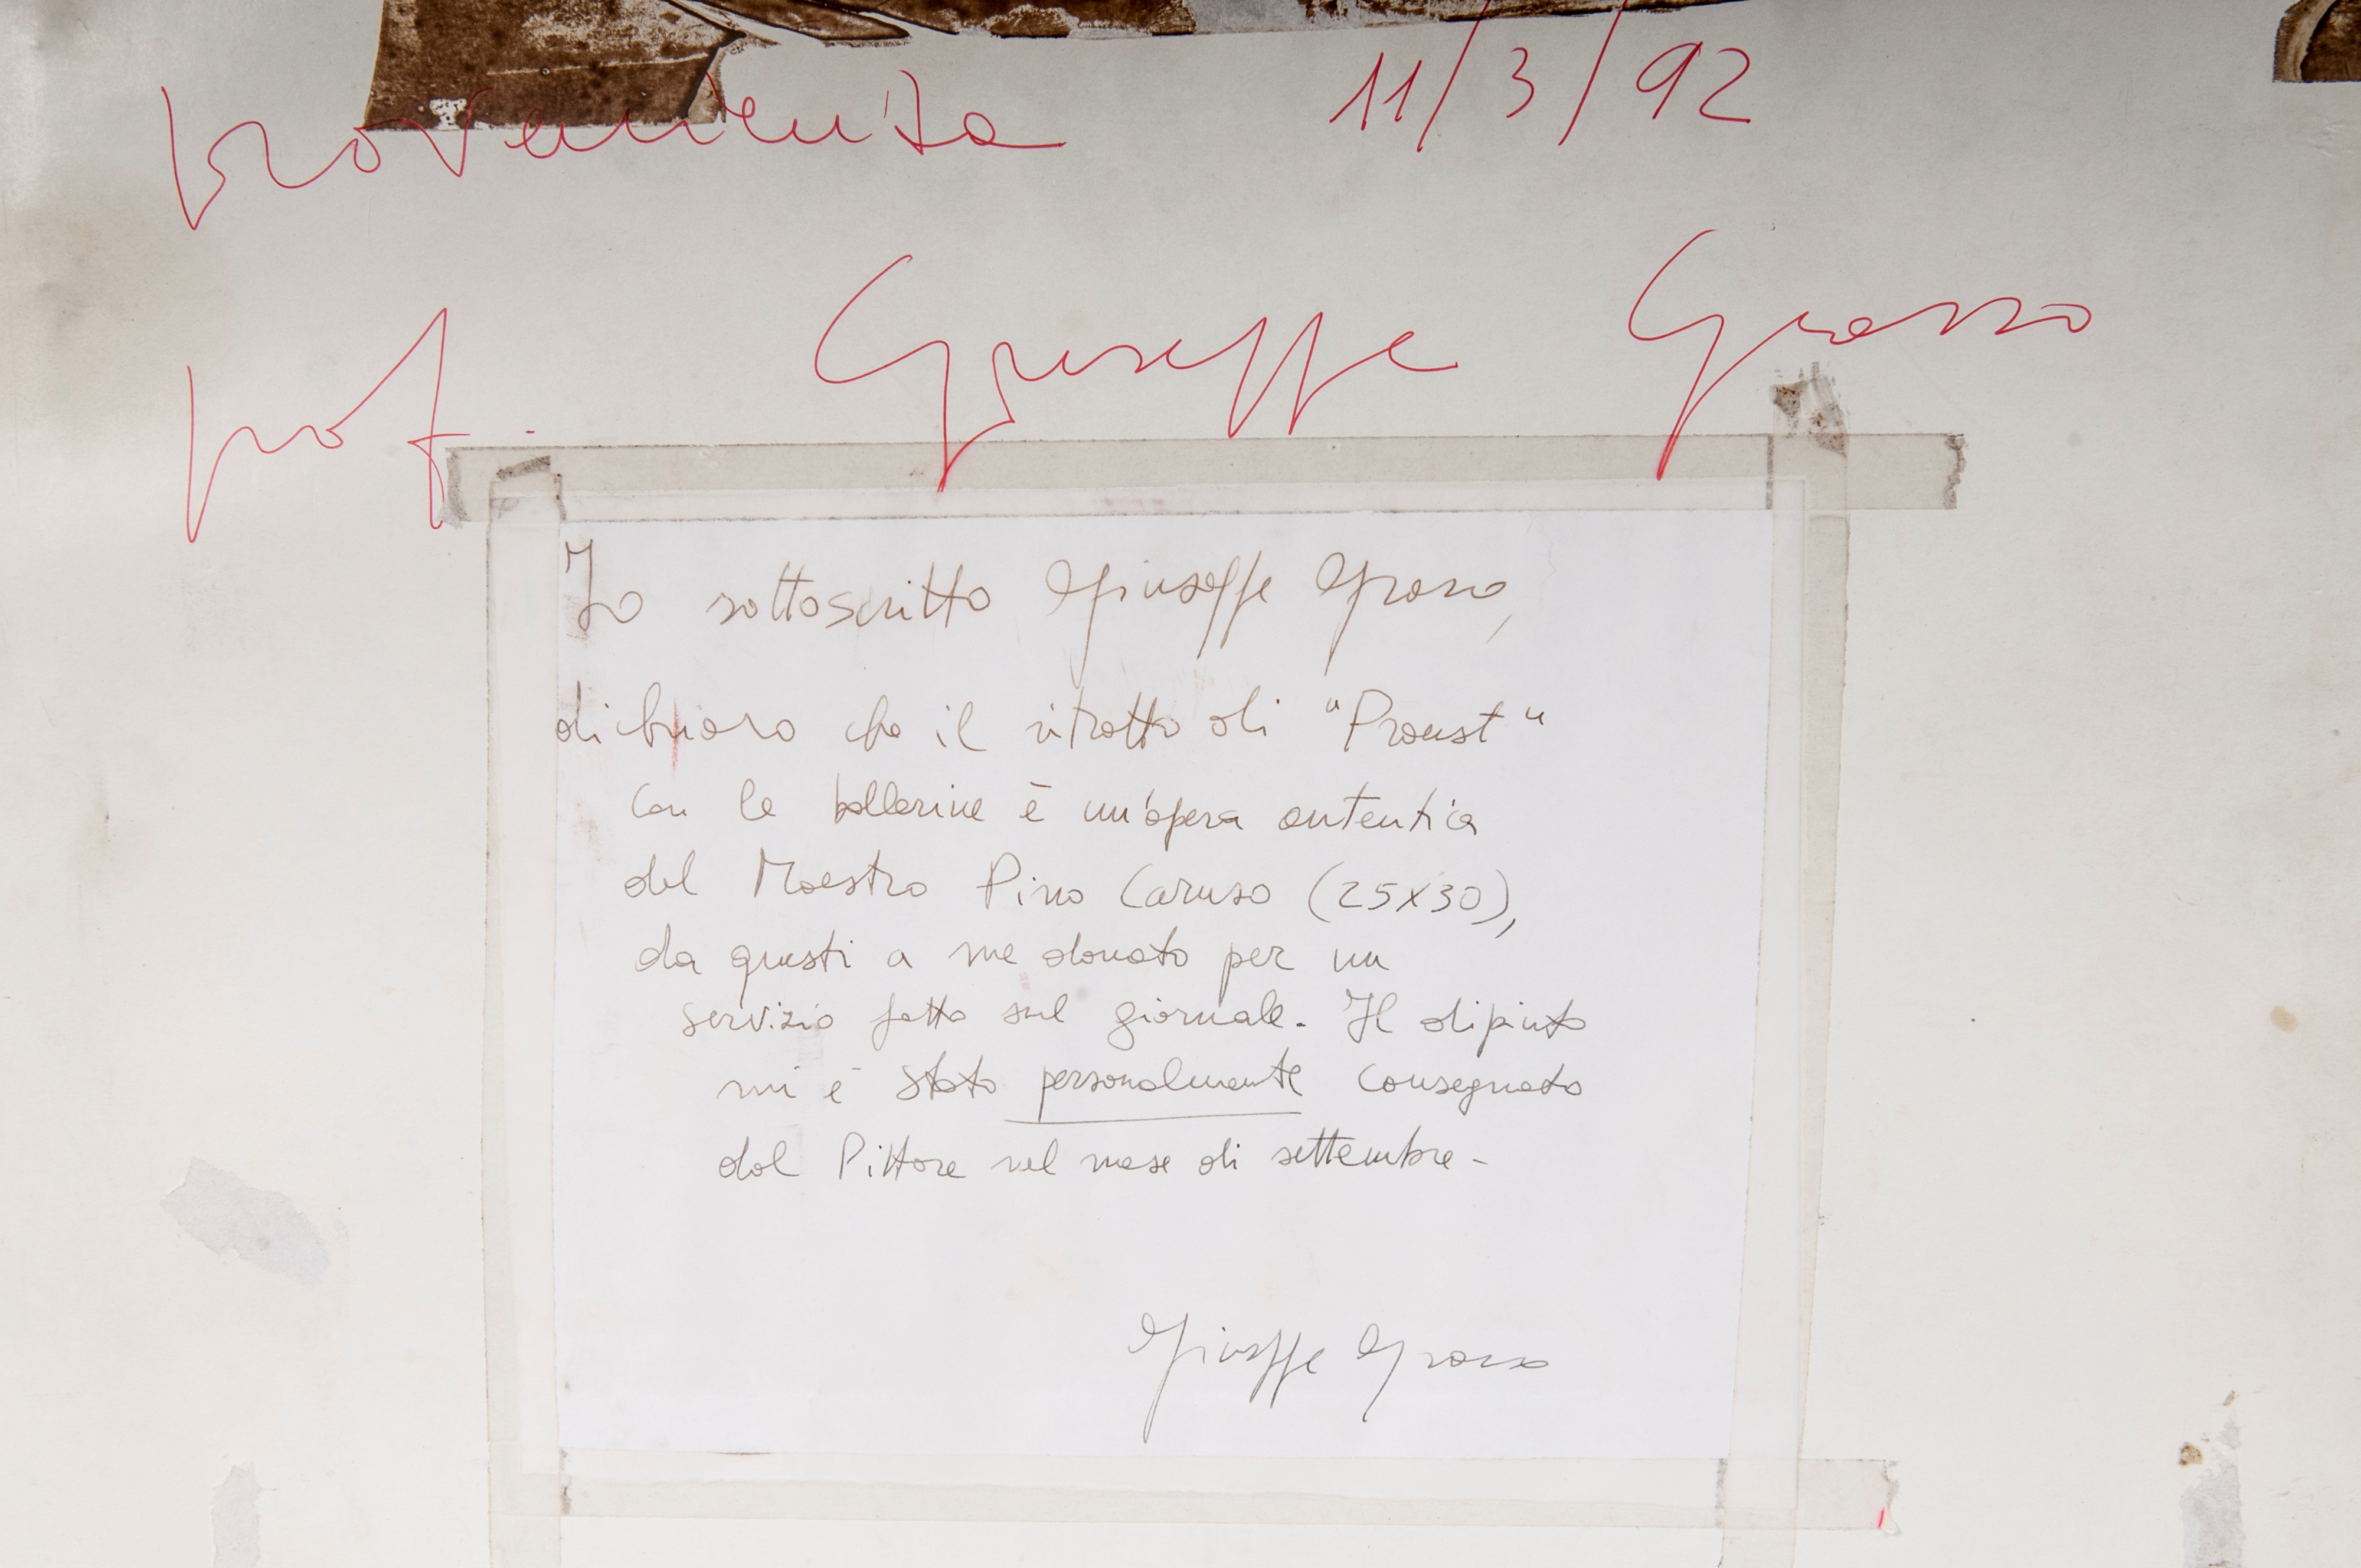 provenienza 11/3/92
prof. Giuseppe Grasso
Io sottoscritto Giuseppe Grasso,
dichiaro che il ritratto di "Proust"
con le ballerine è un'opera autentica
del Maestro Pino Caruso (25x30),
da questi a me donato per un
servizio fatto sul giornale. Il dipinto
mi è stato personalmente consegnato
dal Pittore nel mese di settembre-
Giuseppe Grasso